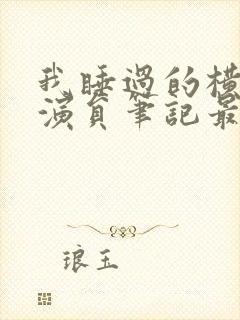 我睡過的横
演員筆記最
琅玉